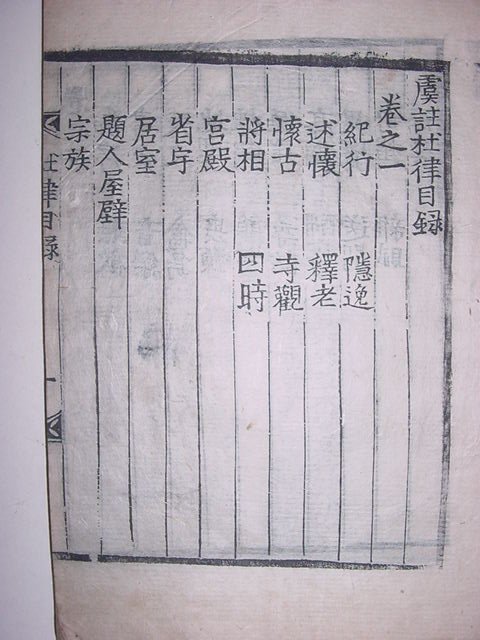 虞註杜律目録
卷之一
紀行　隱逸
述懷　釋老
懷古　寺觀
將相　四時
宮殿
省宇
居室
題人屋壁
宗族
杜律目録
一